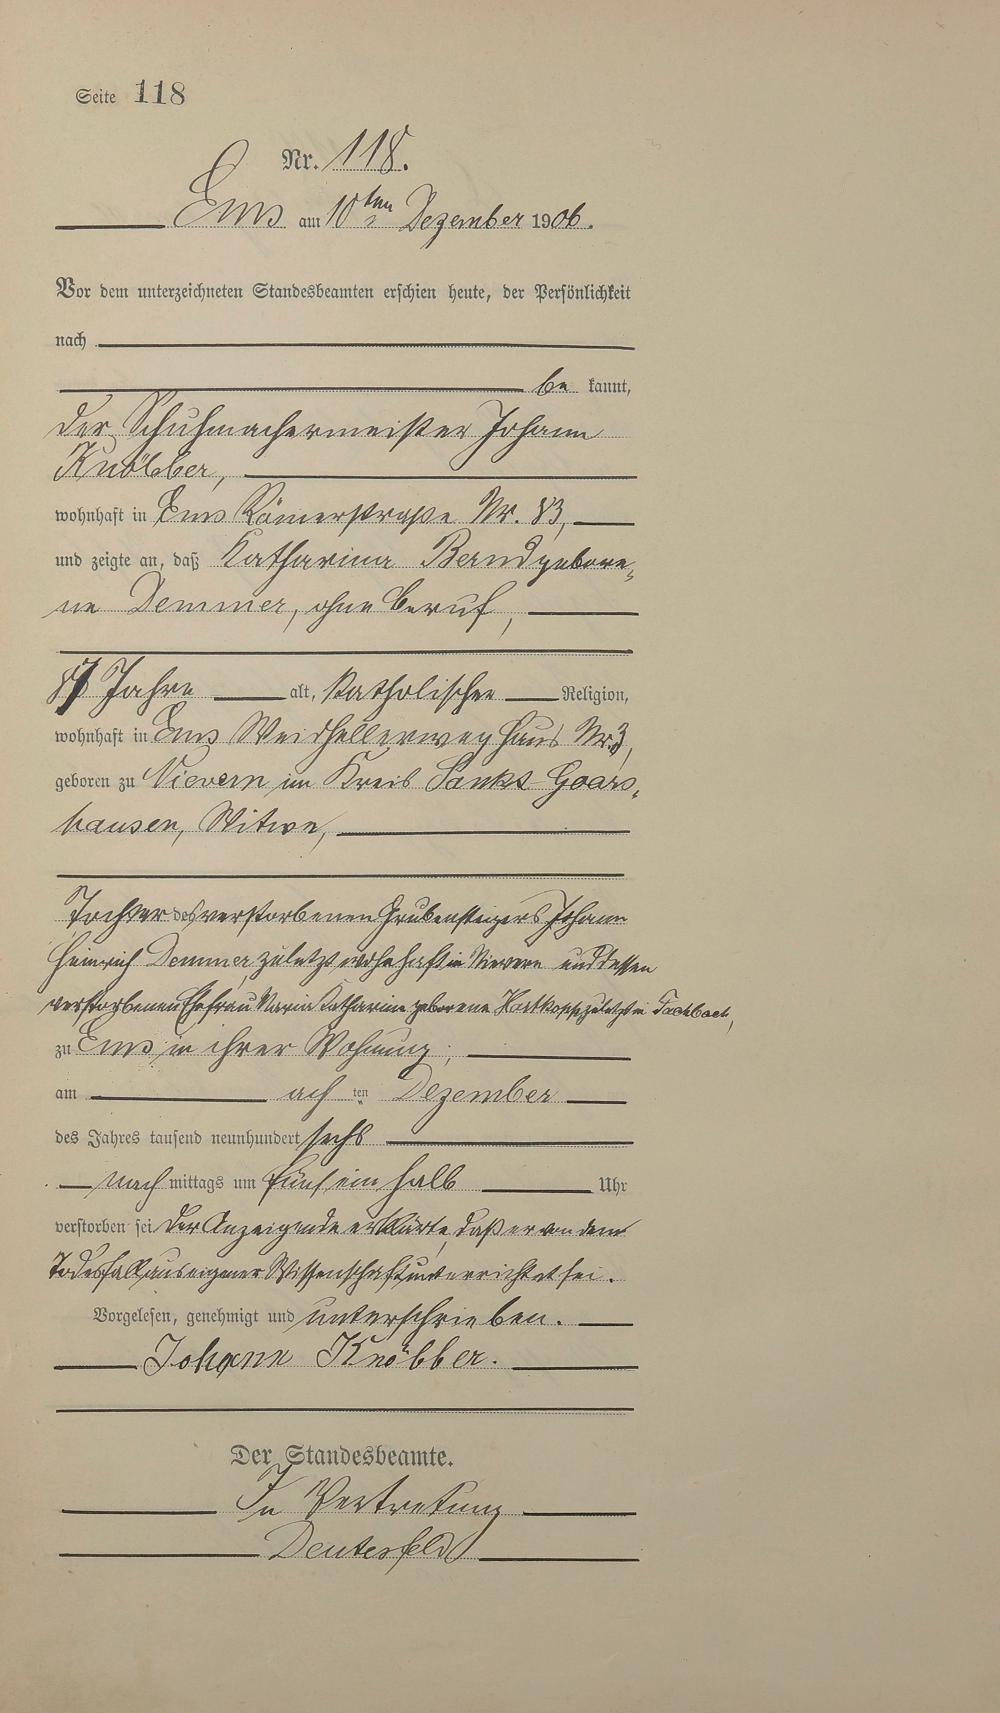 Seite 118
Nr. 118.
Ems am 10ten Dezember 1906.
Vor dem unterzeichneten Standesbeamten erschien heute, der Persönlichkeit
nach
be kannt,
der Schuhmachermeister Johann
Knöbber,
wohnhaft in Ems Römerstraße Nr. 83,
und zeigte an, daß Katharina Bernd gebore-
ne Demmer, ohne Beruf,
Jahre alt, katholischer Religion,
wohnhaft in Ems Weidhellerweg Haus Nr. 3,
geboren zu Nievern im Kreis Sankt Goars-
hausen, Witwe,
Tochter des verstorbenen Grubensteigers Johann
Heinrich Demmer, zuletzt wohnhaft in Nievern und dessen
verstorbenen Ehefrau Maria Katharina geborene Hartkopf, zuletzt in Fachbach,
zu Ems in ihrer Wohnung,
am ach ten Dezember
des Jahres tausend neunhundert sechs
nach mittags um fünf ein halb Uhr
verstorben sei. Der Anzeigende erklärte, daß er von dem
Todesfall aus eigener Wissenschaft unterrichtet sei.
Vorgelesen, genehmigt und unterschrieben.
Johann Knöbber.
Der Standesbeamte.
In Vertretung
Deutesfeld